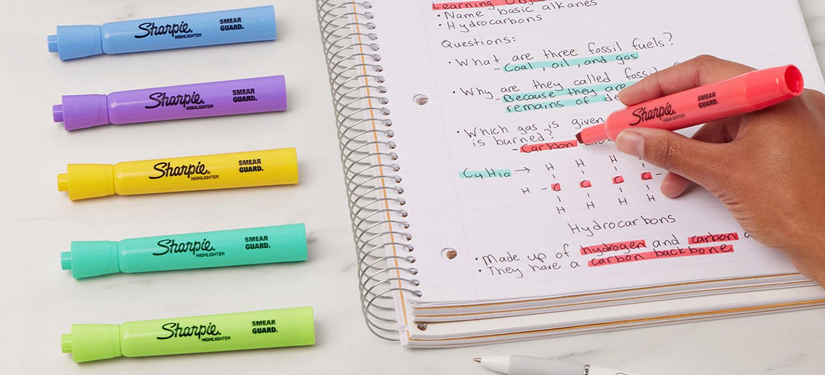 Sharpie. SMEAR GUARD.
HIGHLIGHTER
Sharpie. SMEAR GUARD.
HIGHLIGHTER
Sharpie. SMEAR GUARD.
HIGHLIGHTER
Sharpie. SMEAR GUARD.
HIGHLIGHTER
Sharpie. SMEAR GUARD.
HIGHLIGHTER
Learning
• Name basic alkanes
• Hydrocarbons
Questions:
• What are three fossil fuels?
- Coal, oil, and gas
• Why are they called
- Because they are
remains of
• Which gas is given
is burned?
- Carbon
C4H10 →
H H H H
H - C C C C
H H H H
Hydrocarbons
• Made up of hydrogen and carbon
• They have a carbon backbone
Sharpie. SMEAR GUARD.
HIGHLIGHTER